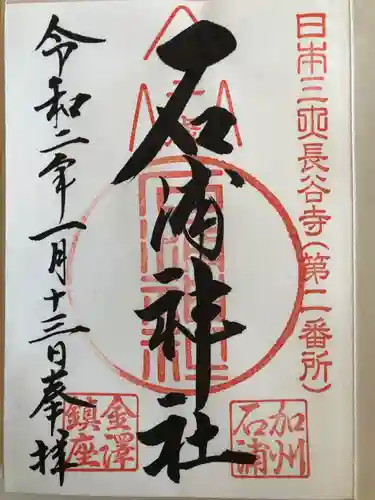 日本三大長谷寺(第二番所)
加州
石浦
石浦神社
令和二年一月十三日奉拝
金澤
鎮座